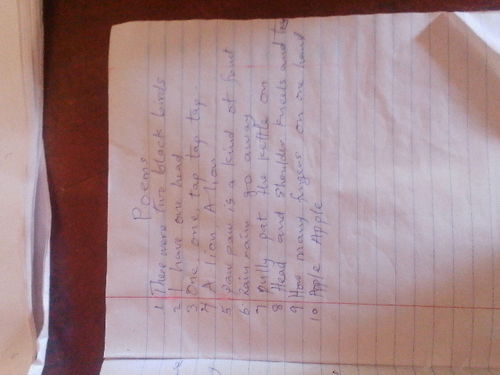 Poems
1 There were two black birds
2 I have one head
3 One, one, tap tap tap
4 A lion A lion
5 Paw paw is a kind of fruit
6 Rain rain go away
7 Polly put the kettle on
8 Head and shoulder kneels and
9 How many fingers on one hand
10 Apple Apple